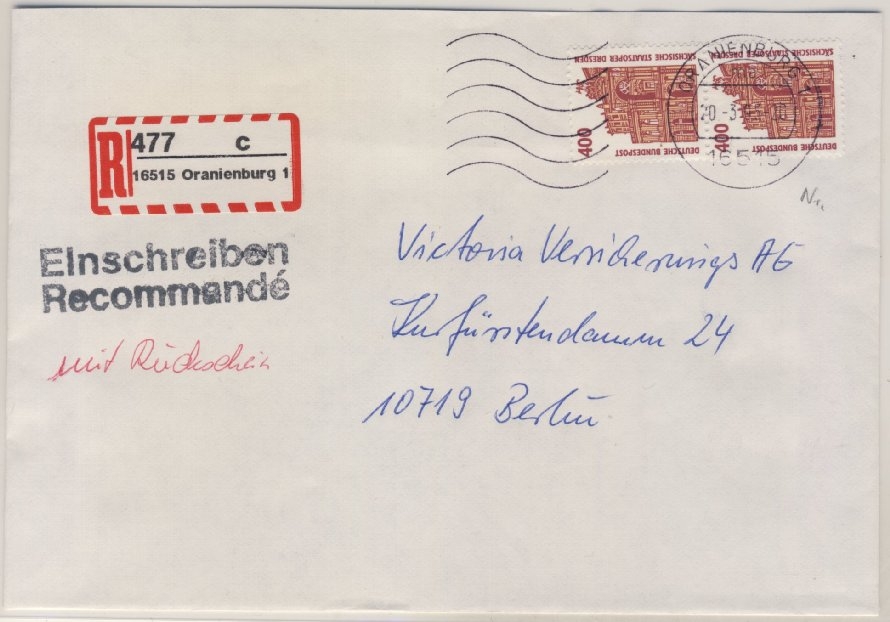 SÄCHSISCHE STAATSOPER DRESDEN
400
DEUTSCHE BUNDESPOST
SÄCHSISCHE STAATSOPER DRESDEN
400
DEUTSCHE BUNDESPOST
ORANIENBURG 1
16515
R 477 c
16515 Oranienburg 1
Einschreiben
Recommandé
mit Rückschein
Victoria Versicherungs AG
Kurfürstendamm 24
10719 Berlin